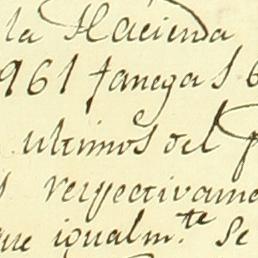 la Hacienda
961 fanegas 6
ultimos del
respectivame
que igualm.te Se